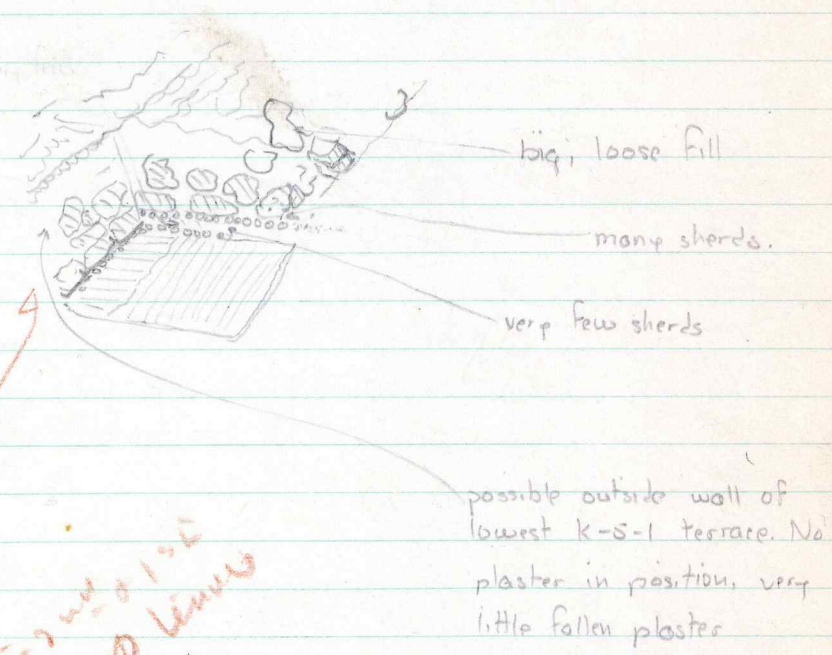 big, loose fill
many sherds.
very few sherds
possible outside wall of
lowest K-5-1 terrace. No
plaster in position, very
little fallen plaster